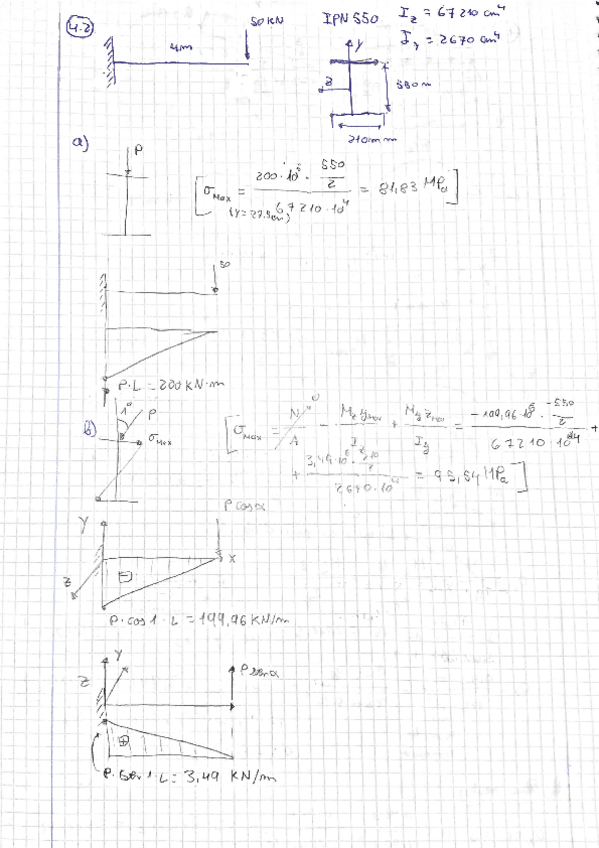 4.2
50 KN
4m
IPN 550
I_z = 67210 cm⁴
I_y = 2670 cm⁴
y
z
550 m
210mm
a)
P
[σ_Max = (200·10⁶ · 550/2) / (67210·10⁴) = 81,83 MPa]
(y=27.5cm)
50
P·L = 200 KN·m
b)
1°
P
σ_Max
[σ_Max = N/A⁰ - M_z y_max / I_z + M_y z_max / I_y = (-199,96·10⁶ · -550/2) / (67210·10⁴) +
+ (3,49·10⁶ · 210/2) / (2670·10⁴) = 95,54 MPa]
P cos α
y
x
z
⊟
P·cos 1·L = 199,96 KN/m
y
z
P sen α
⊕
P·sen 1·L = 3,49 KN/m